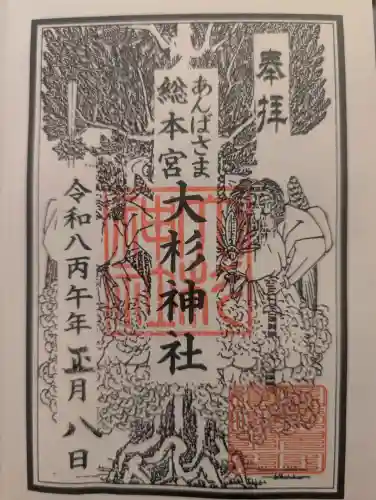 奉拝
あんばさま
総本宮
大杉神社
令和八丙午年正月八日